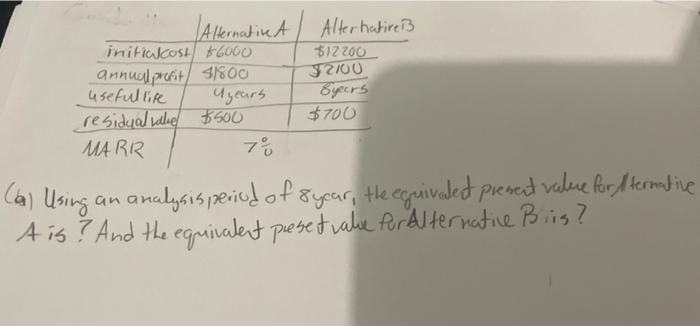 Alternative A Alterhative B
initial cost $6000 $12200
annual profit $1800 $2100
useful life 4 years 8 years
residual value $500 $700
MARR 7%
(a) Using an analysis, period of 8 year, the equivaled present value for Alternative
A is? And the equivalent preset value for Alternative B iis?